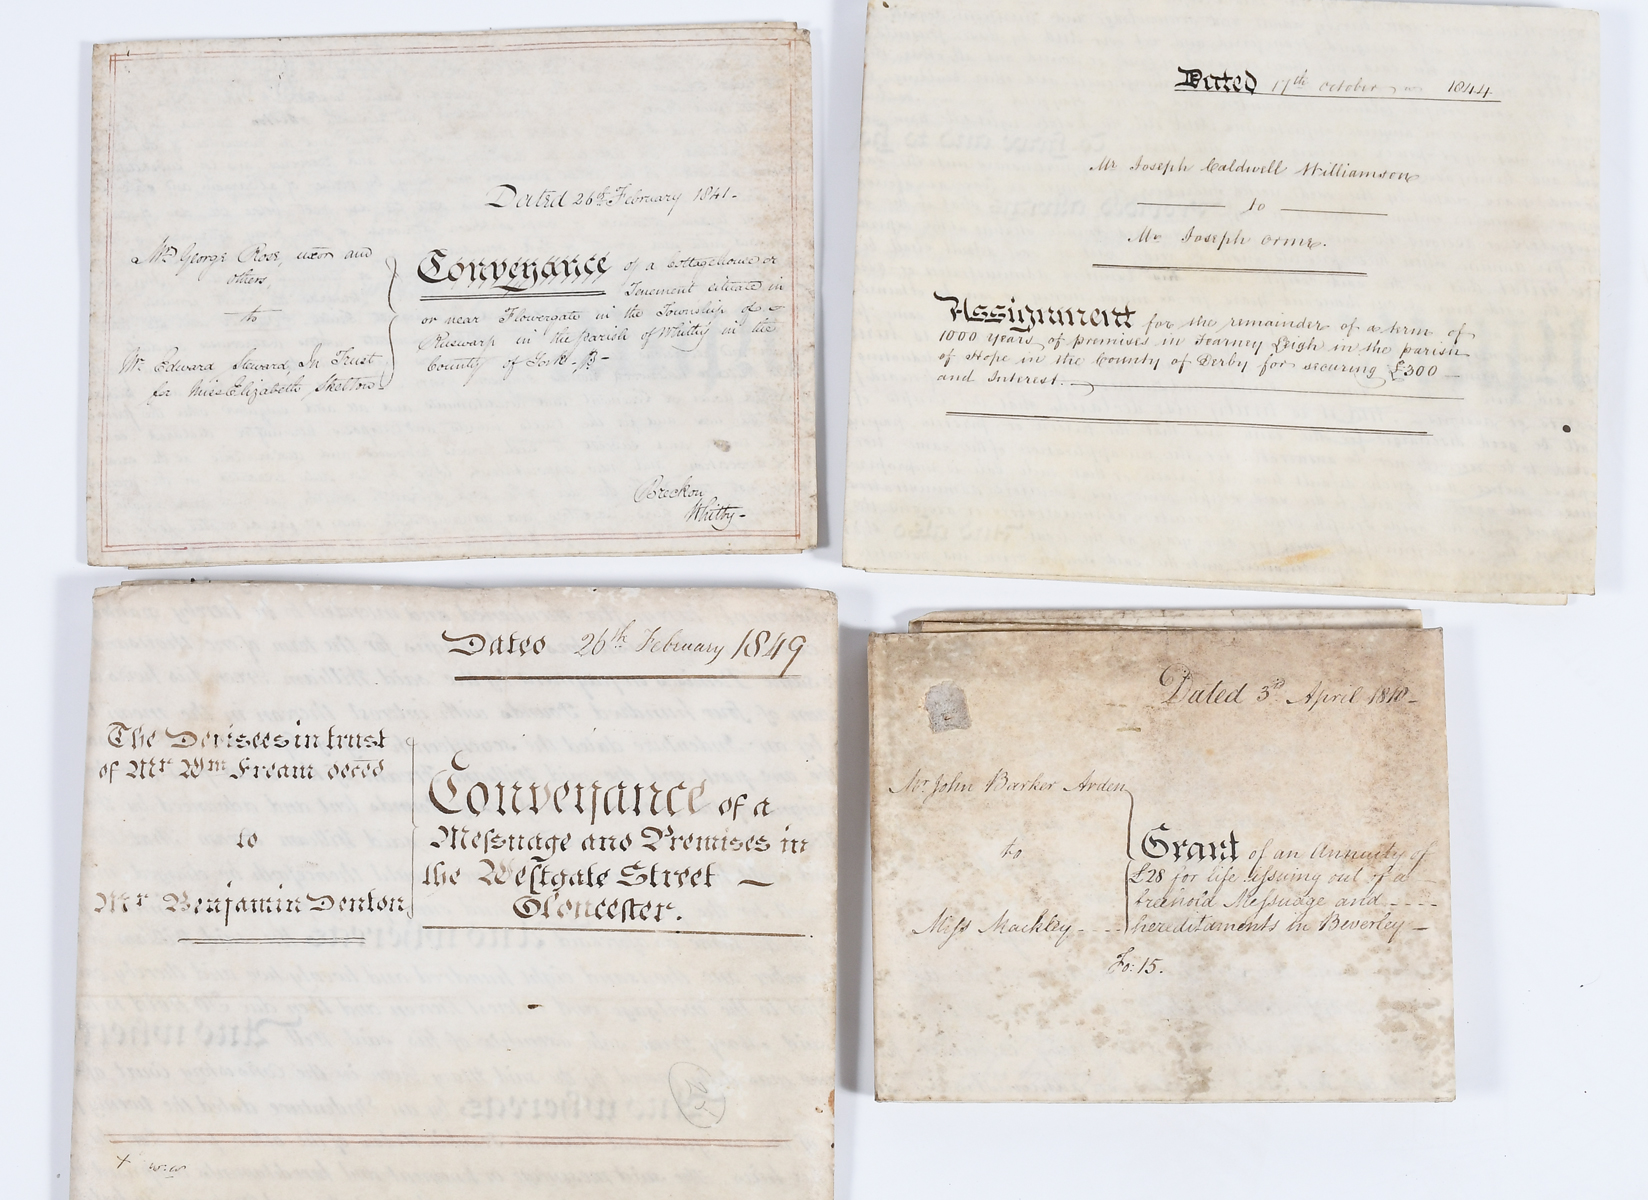 Dated 26th February 1841-
Mr George Rose, uxor and
others,
to
Mr Edward Steward, In Trust
for Miss Elizabeth Skelton
Conveyance of a Cottagehouse or
Tenement situate in
or near Flowergate in the Township of
Ruswarp in the parish of Whitby in the
County of York.
Breckon
Whitby-
Dated 17th October 1844
Mr Joseph Caldwell Williamson
to
Mr Joseph Orme.
Assignment for the remainder of a term of
1000 years of premises in Fearney Leigh in the parish
of Hope in the County of Derby for securing £300
and Interest.
Dated 26th February 1849
The Devisees in trust
of Mr Wm Fream deced
to
Mr Benjamin Denton
Conveyance of a
Meſsuage and Premises in
the Weſtgate Street —
Glouceſter.
Dated 3rd April 1810-
Mr John Barker Arden
to
Miſs Mackley
Grant of an Annuity of
£28 for life issuing out of a
freehold Meſsuage and
hereditaments in Beverley
Fo: 15.